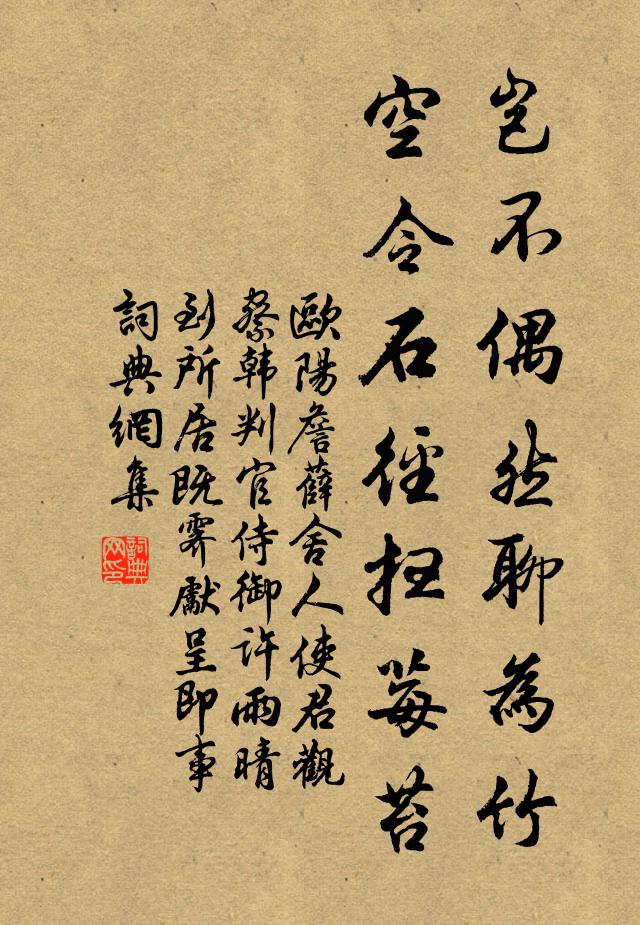 豈不偶然聊為竹
空令石徑掃莓苔
歐陽詹薛舍人使君觀
察韓判官侍御許雨晴
到所居既霽獻呈即事
詞典網集
詞典
网印